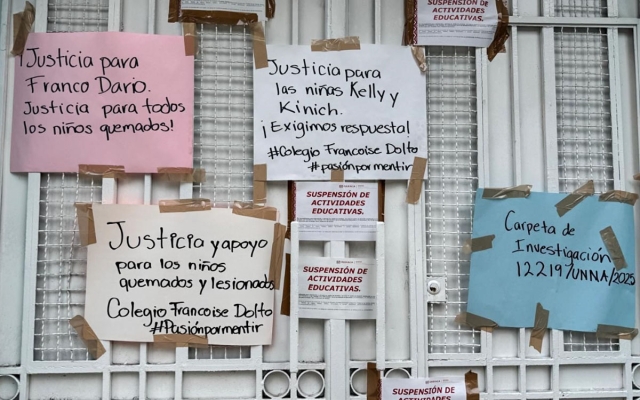 ¡Justicia para
Franco Dario.
Justicia para todos
los niños quemados!
SUSPENSIÓN DE
ACTIVIDADES EDUCATIVAS.
Justicia para
las niñas Kelly y
Kinich.
¡Exigimos respuesta!
#Colegio Francoise Dolto
#pasiónpormentir
SUSPENSIÓN DE
ACTIVIDADES
EDUCATIVAS.
Justicia y apoyo
para los niños
quemados y lesionados
Colegio Francoise Dolto
#Pasiónpormentir
SUSPENSIÓN DE
ACTIVIDADES
EDUCATIVAS.
Carpeta de
Investigación
12219/UNNA/2025
SUSPENSIÓN DE
ACTIVIDADES